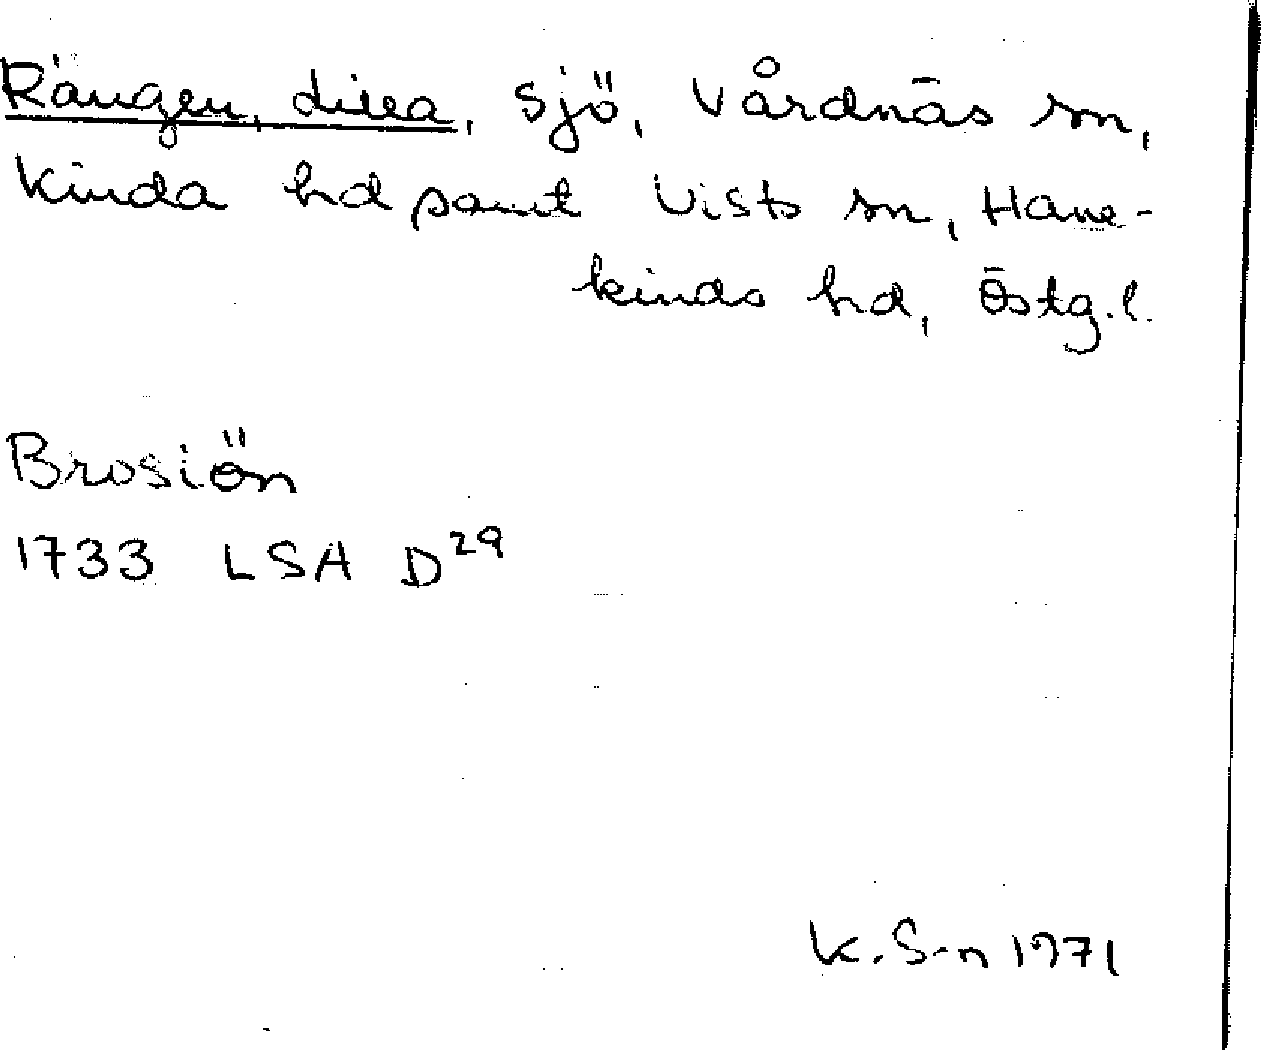 Rängen, Lilla, sjö, Vårdnäs sn,
Kinda hd samt Vists sn, Hane-
kinds hd, Östg.l.
Brosiön
1733 LSA D29
K. S-n 1971